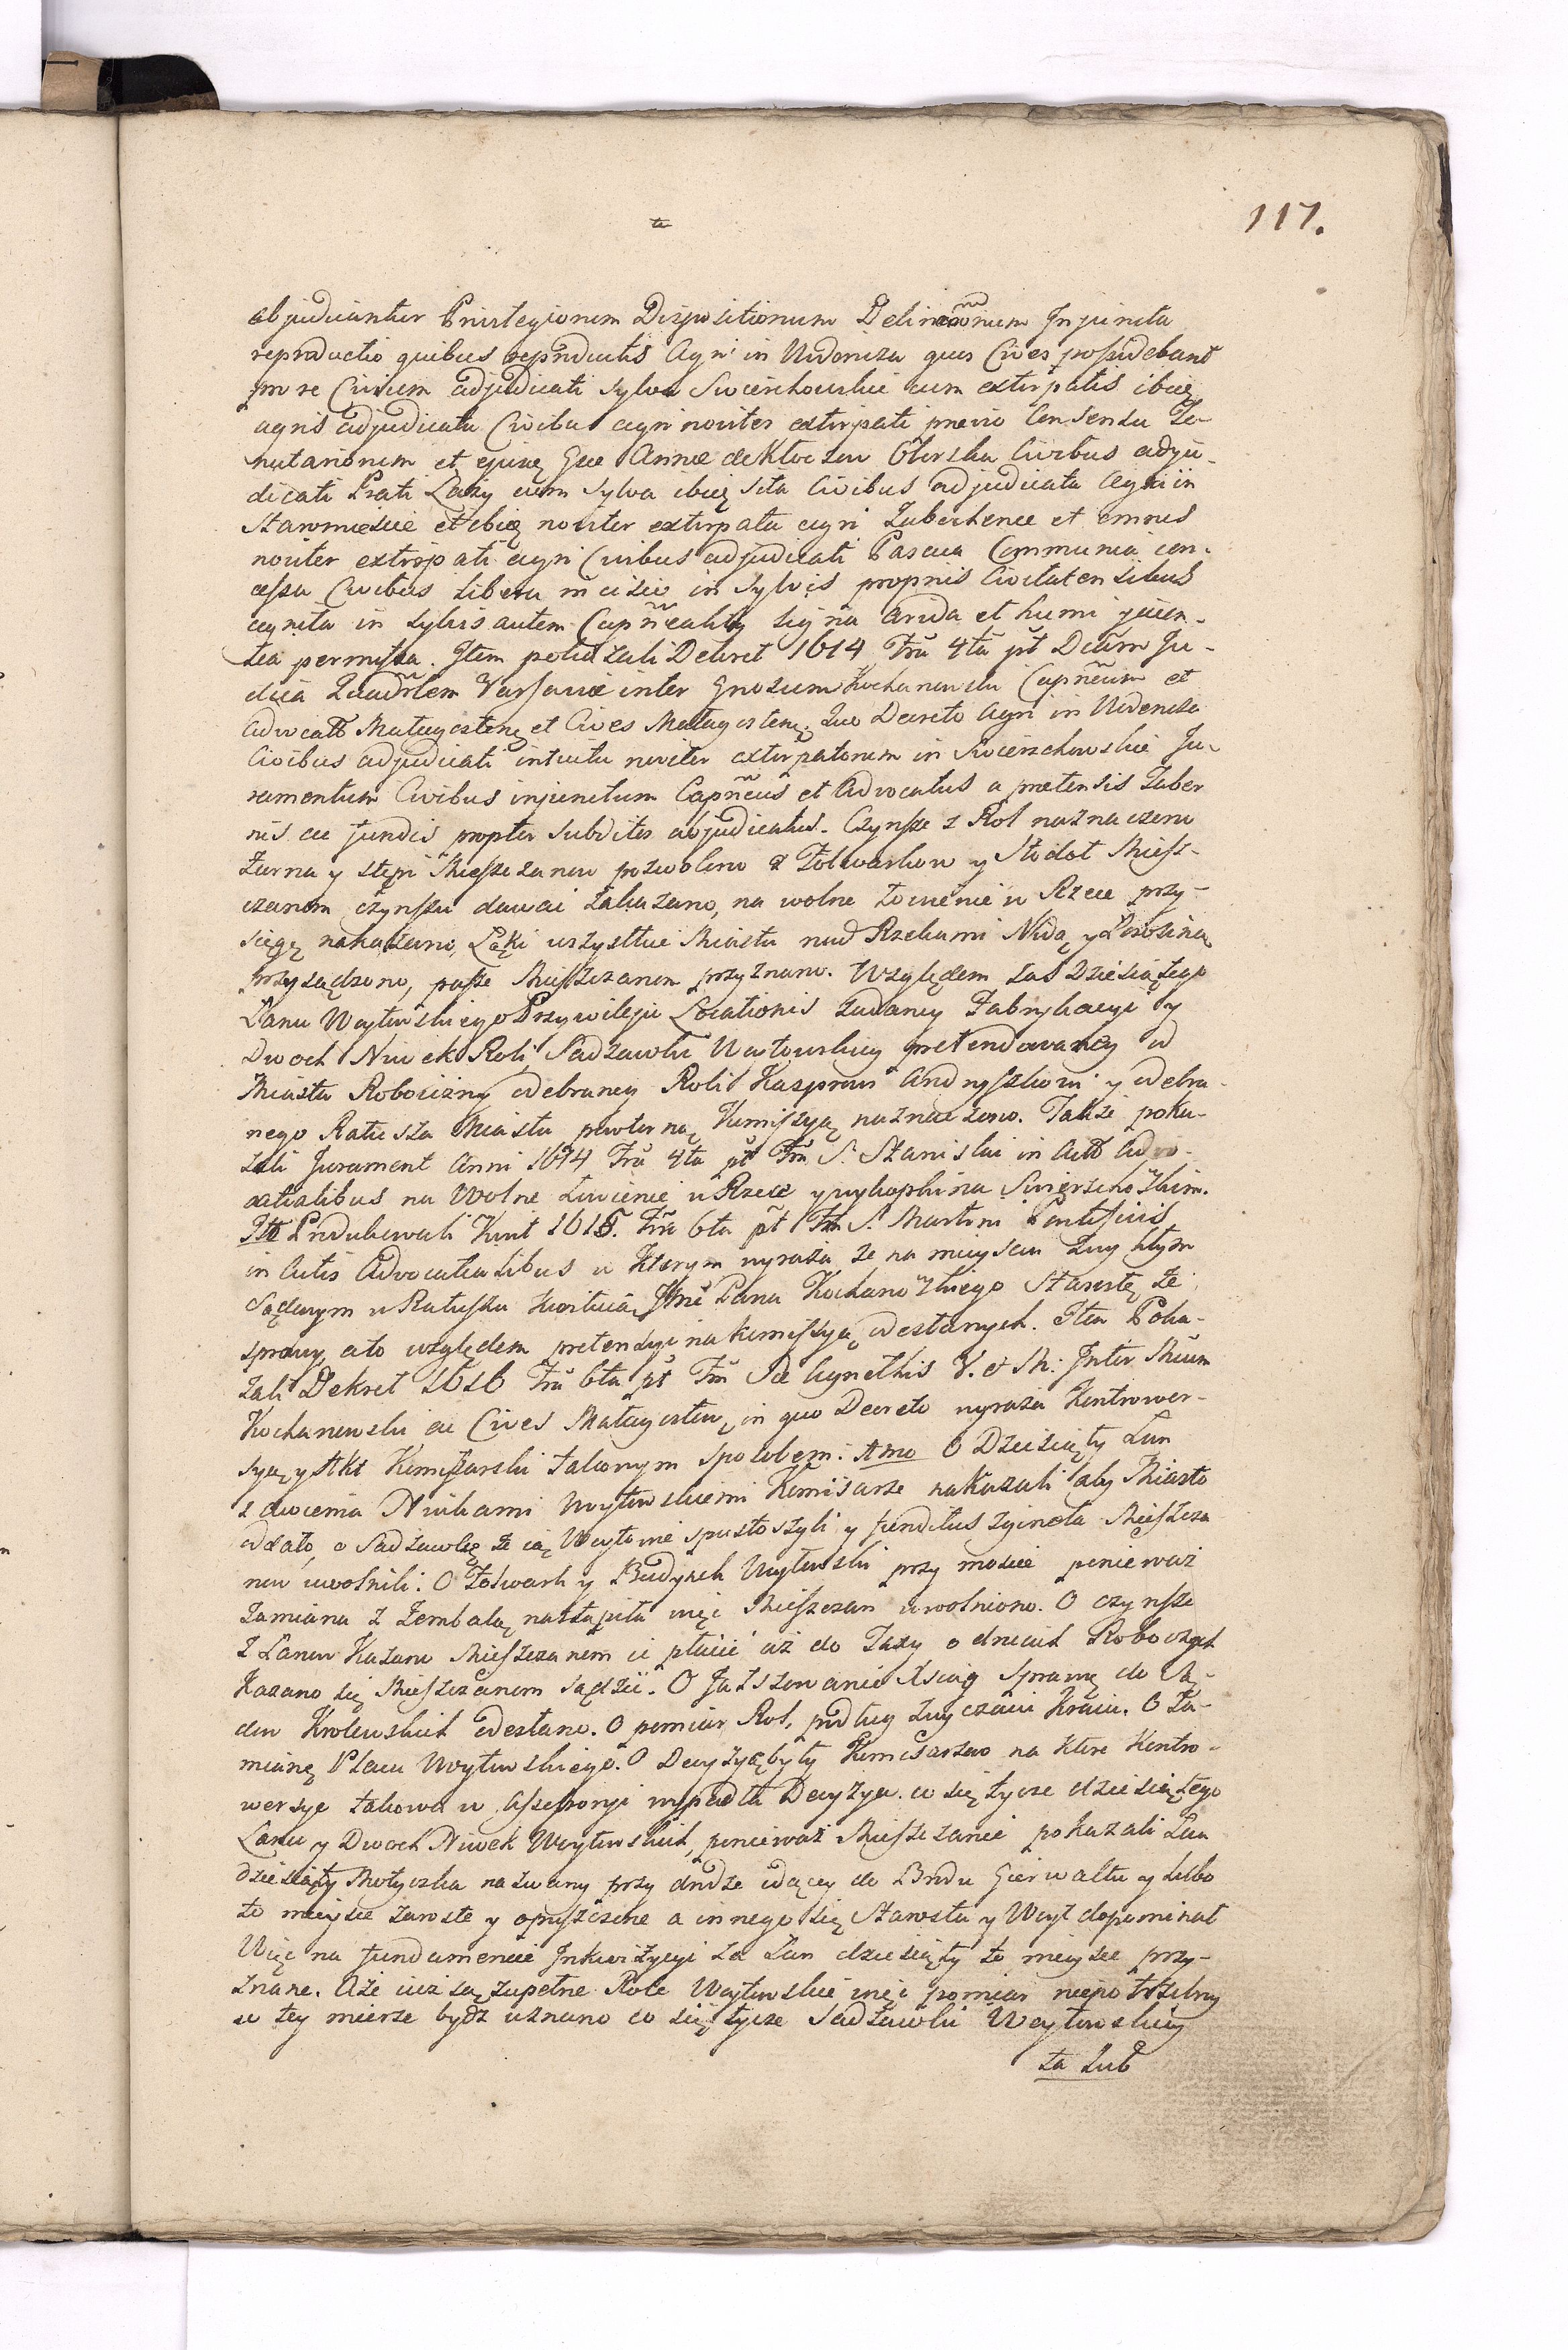 117.
abjudicantur Privilegiorum Dispositionum Delineãonum Injuncta
reproductio quibus reproductis Agri in Urdoniza quos Cives possidebant
in re Civium adjudicati Sylva Swierchowskie cum extirpatis ibieq
agris adjudicata Civibus agri noviter extirpati previo Consensu Te-
nutariorum et ejusq Gsee Annae de Kloczow Oliwska Civibus adju-
dicati Prati Łazy cum Sylva ibieq sita Civibus adjudicata Agri in
Staromieście et ibiq noviter extirpata agri Zaberchenee et omnes
noviter extirpati agri Civibus adjudicati Pascua Communia con-
cessa Civibus libera incisio in Sylvis propriis Civitatensibus
cognita in Sylvis autem Capñealib9 ligna arida et humi jacen-
tea permissa. Item pokazali Dekret 1614 Fra 4ta pt Dcam Ju-
dica Quadrlem Varsavie inter Gnosum Kochanowski Capneum et
Advcatt Małagosteñ et Cives Małagosten: Quo Decreto Agri in Urdeniza
Civibus adjudicati intuitu noviter extirpatorum in Swierzchowskie Ju-
ramentum Civibus injunctum Capñeus et Advocatus a pretensis Taber
nis ac fundis propter Subditos abjudicatus. Czynsze z Rol naznaczono
Żarna y stępi Mieszczanow pozwolono z Folwarkow y Stodoł Miesz-
czanom czynszu dawać zakazano, na wolne łowienie w Rzece przy-
sięgę nakazano, Łąki wszystkie Miasta nad Rzekami Nidą y Łososiną
przysądzono, pasze Mieszczanom przyznano. Względem zaś Dziesiątego
Łanu Woytowskiego Przywileju Locationis zadaney Fabrykacyi y
Dwoch Niwek Roli Sadzawki Woytowskiey pretendowaney od
Miasta Robocizny odebraney Roli Kasprowi Andryszkowi y odebra-
nego Ratusza Miastu powtorną Komissyą naznaczono. Także poka-
zali Jurament Anni 1614 Fra 4ta pt Fm S. Stanislai in Actt Advo-
catialibus na Wolne Łowienie w Rzece y wykopki na Swierzcho Zkim.
Itt Produkowali Kwit 1615. Fra 6ta pt Fm S. Martini Pontificis
in Actis Advocatialibus w ktorym wyraża że na mieyscu Zwykłym
Sądowym w Ratuszu kwituią Jmć Pana Kochanowskiego Starostę ze
sprawy ato względem pretensyi na komissyą odesłanych. Item Poka-
zali Dekret 1616 Fra 6ta pt Fm Sae Agnethis V. et M: Inter Mcum
Kochanowski ac Cives Małagosten, in quo Decreto wyraża Kontrower-
syą y Akt Komissarski takowym sposobem: 1mo O Dziesiąty Łan
z dwiema Niwkami Woytowskiemi Komisarze nakazali aby Miasto
oddało, o Sadzawkę że ią Woytowie spustoszyli y funditus zgineła Mieszcza
now uwolnili. O Folwark y Budynek Woytowski przy moscie ponieważ
zamiana z Zembalą nastąpiła więc Mieszczan uwolniono. O czynsze
z Łanow Kazano Mieszczanom ie płacić aż do Taxy o dniach Roboczych
Kazano się Mieszczanom sądzić. O Falszowanie Xsiąg Sprawę do Są-
dow Krolewskich odesłano. O pomiar Rol, podług zwyczaiu Kraiu. O Za-
mianę Placu Woytowskiego. O Decyzyą byłą Komisarzow na ktore Kontro-
wersye takowa w Assessoryi wypadła Decyzya. co się tycze dziesiątego
Łanu y Dwoch Niwek Woytowskich, ponieważ Mieszczanie pokazali Łan
dziesiąty Motyczka nazwany przy drodze idącey do Brodu Gierwałtu y lubo
to mieysce zarosłe y opuszczone a innego się Starosta y Woyt dopominał
Więc na fundamencie Inkwizycyi za Łan dziesiąty to mieysce przy-
znane. Aże iuż są zupełne Role Woytowskie więc pomiar niepotrzebny
w tey mierze bydź uznano co się tycze Sadzawki Woytowskiey
ta lub